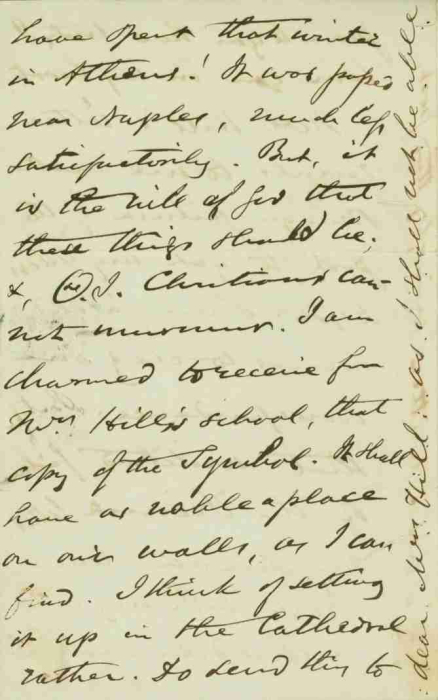 have spent that winter
in Athens! It was passed
near Naples, much less
satisfactorily. But, it
is the will of God that
these things should be;
&, Christians can-
not murmur. I am
charmed to receive from
Mrs Hill's school, that
copy of the Symbol. It shall
have as noble a place
on our walls, as I can
find. I think of setting
it up in the Cathedral
rather. Do send this to
dear Mrs Hill: as I shall not be able